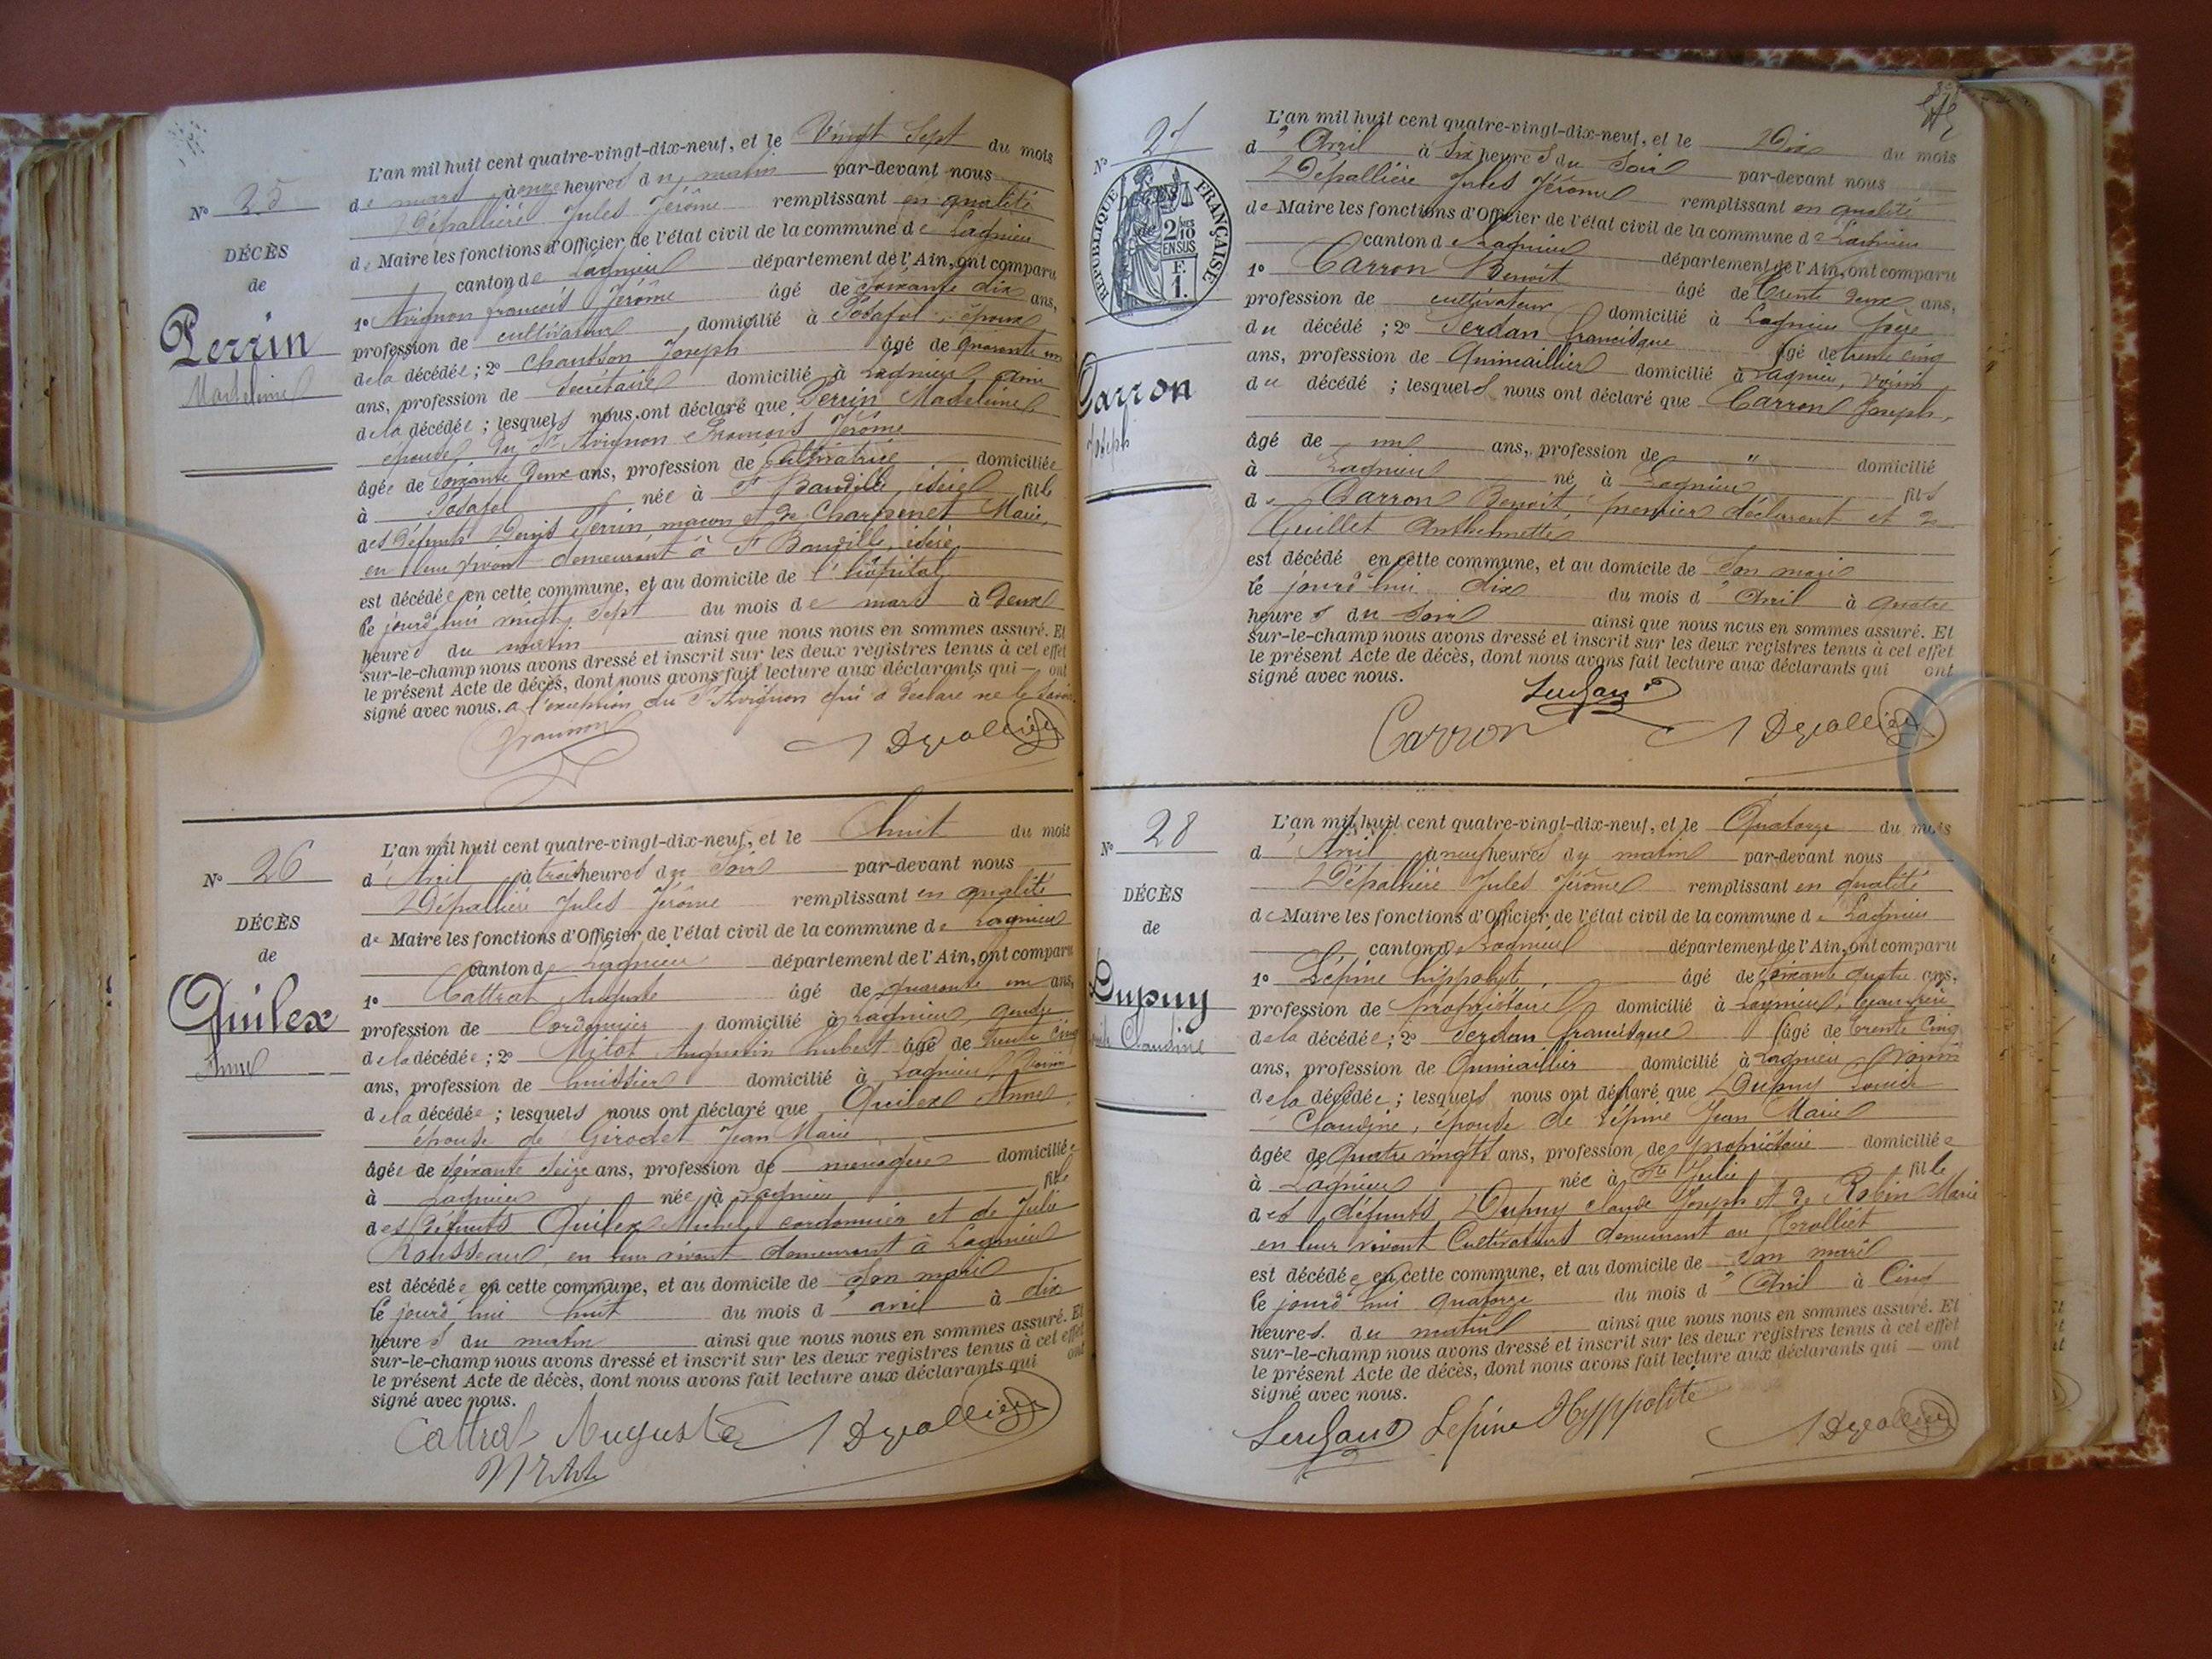 N° 25
DÉCÈS
de
Perrin
Madeleine
L'an mil huit cent quatre-vingt-dix-neuf, et le Vingt Sept du mois
de mars à onze heures du matin par-devant nous
Dépallière Jules Jérôme remplissant en qualité
de Maire les fonctions d'Officier de l'état civil de la commune de Lagnieu
canton de Lagnieu département de l'Ain, ont comparu
1° Avignon françois Jérôme âgé de soixante dix ans,
profession de cultivateur domicilié à Posafol, époux
de la décédée ; 2° Chausson Joseph âgé de quarante un
ans, profession de Secrétaire domicilié à Lagnieu, ami
de la décédée ; lesquels nous ont déclaré que Perrin Madeleine
épouse du Sr Avignon François Jérôme
âgée de soixante deux ans, profession de Cultivatrice domiciliée
à Posafol née à St Baudille, isère fille
des défunts Denis Perrin maçon et de Charpenet Marie,
en leur vivant demeurant à St Baudille, isère,
est décédée en cette commune, et au domicile de l'hôpital
le jourd'hui vingt sept du mois de mars à deux
heures du matin ainsi que nous nous en sommes assuré. Et
sur-le-champ nous avons dressé et inscrit sur les deux registres tenus à cet effet
le présent Acte de décès, dont nous avons fait lecture aux déclarants qui — ont
signé avec nous. a l'exception du Sr Avignon qui a déclaré ne le savoir.
N° 26
DÉCÈS
de
Quilex
Anne
L'an mil huit cent quatre-vingt-dix-neuf, et le huit du mois
d' Avril à trois heures du Soir par-devant nous
Dépallière Jules Jérôme remplissant en qualité
de Maire les fonctions d'Officier de l'état civil de la commune de Lagnieu
canton de Lagnieu département de l'Ain, ont comparu
1° Cattrat Auguste âgé de quarante un ans,
profession de Cordonnier domicilié à Lagnieu, gendre
de la décédée ; 2° Milot Augustin hubert âgé de trente cinq
ans, profession de huissier domicilié à Lagnieu, Voisin
de la décédée ; lesquels nous ont déclaré que Quilex Anne
épouse de Girodet Jean Marie
âgée de soixante seize ans, profession de ménagère domiciliée
à Lagnieu née à Lagnieu fille
des défunts Quilex Michel, cordonnier et de Julie
Rousseau, en leur vivant demeurant à Lagnieu
est décédée en cette commune, et au domicile de son mari
le jourd'hui huit du mois d' avril à dix
heures du matin ainsi que nous nous en sommes assuré. Et
sur-le-champ nous avons dressé et inscrit sur les deux registres tenus à cet effet
le présent Acte de décès, dont nous avons fait lecture aux déclarants qui ont
signé avec nous.
Cattrat Auguste J Depallière
N° 27
RÉPUBLIQUE FRANÇAISE
2/10 EN SUS
F. 1.
Carron
Joseph
L'an mil huit cent quatre-vingt-dix-neuf, et le Dix du mois
d' Avril à Six heures du Soir par-devant nous
Dépallière Jules Jérôme remplissant en qualité
de Maire les fonctions d'Officier de l'état civil de la commune de Lagnieu
canton de Lagnieu département de l'Ain, ont comparu
1° Carron Benoit âgé de trente deux ans,
profession de cultivateur domicilié à Lagnieu père
du décédé ; 2° Serdan francisque âgé de trente cinq
ans, profession de Quincaillier domicilié à Lagnieu, voisin
du décédé ; lesquels nous ont déclaré que Carron Joseph,
âgé de un ans, profession de " domicilié
à Lagnieu né à Lagnieu fils
de Carron Benoit, premier déclarant et de
Guillet Anthelmette
est décédé en cette commune, et au domicile de Son mari
le jourd'hui dix du mois d' Avril à quatre
heures du Soir ainsi que nous nous en sommes assuré. Et
sur-le-champ nous avons dressé et inscrit sur les deux registres tenus à cet effet
le présent Acte de décès, dont nous avons fait lecture aux déclarants qui ont
signé avec nous.
Carron J Depallière
N° 28
DÉCÈS
de
Dupuy
Claudine
L'an mil huit cent quatre-vingt-dix-neuf, et le Quatorze du mois
d' Avril à neuf heures du matin par-devant nous
Dépallière Jules Jérôme remplissant en qualité
de Maire les fonctions d'Officier de l'état civil de la commune de Lagnieu
canton de Lagnieu département de l'Ain, ont comparu
1° Lépine hippolyte âgé de soixante quatre ans,
profession de propriétaire domicilié à Lagnieu, beau frère
de la décédée ; 2° Serdan francisque âgé de trente cinq
ans, profession de Quincaillier domicilié à Lagnieu Voisin
de la décédée ; lesquels nous ont déclaré que Dupuy Louise
Claudine, épouse de Lépine Jean Marie
âgée de Quatre vingts ans, profession de propriétaire domiciliée
à Lagnieu née à Ste Julie fille
des défunts Dupuy Claude Joseph et de Robin Marie
en leur vivant Cultivateurs demeurant au Trolliet
est décédée en cette commune, et au domicile de son mari
le jourd'hui quatorze du mois d' Avril à Cinq
heures du matin ainsi que nous nous en sommes assuré. Et
sur-le-champ nous avons dressé et inscrit sur les deux registres tenus à cet effet
le présent Acte de décès, dont nous avons fait lecture aux déclarants qui — ont
signé avec nous.
Lépine Hyppolite J Depallière